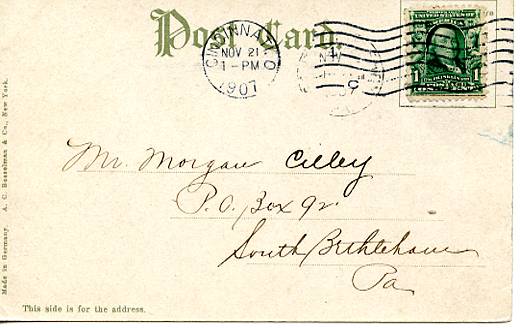 Post Card.
CINCINNATI, O
NOV 21
1-PM
1907
UNITED STATES OF AMERICA
FRANKLIN
1 POSTAGE 1
ONE CENT
Mr. Morgan Cilley
P.O. Box 92.
South Bethlehem
Pa
This side is for the address.
Made in Germany. A. C. Bosselman & Co., New York.